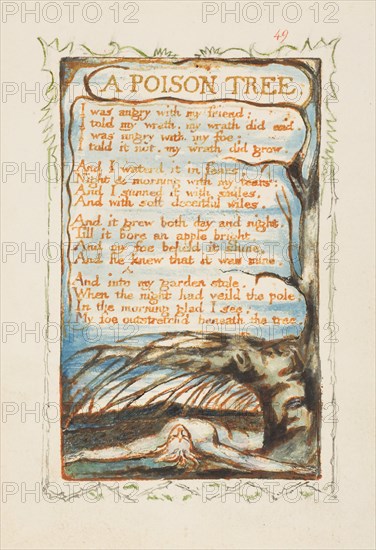 PHOTO12 PHOTO12 PHOTO12
49
A POISON TREE.
I was angry with my friend:
I told my wrath, my wrath did end.
I was angry with my foe:
I told it not, my wrath did grow.
And I waterd it in fears,
Night & morning with my tears:
And I sunned it with smiles,
And with soft deceitful wiles.
And it grew both day and night.
Till it bore an apple bright.
And my foe beheld it shine,
And he knew that it was mine.
And into my garden stole.
When the night had veild the pole;
In the morning glad I see,
My foe outstretchd beneath the tree.